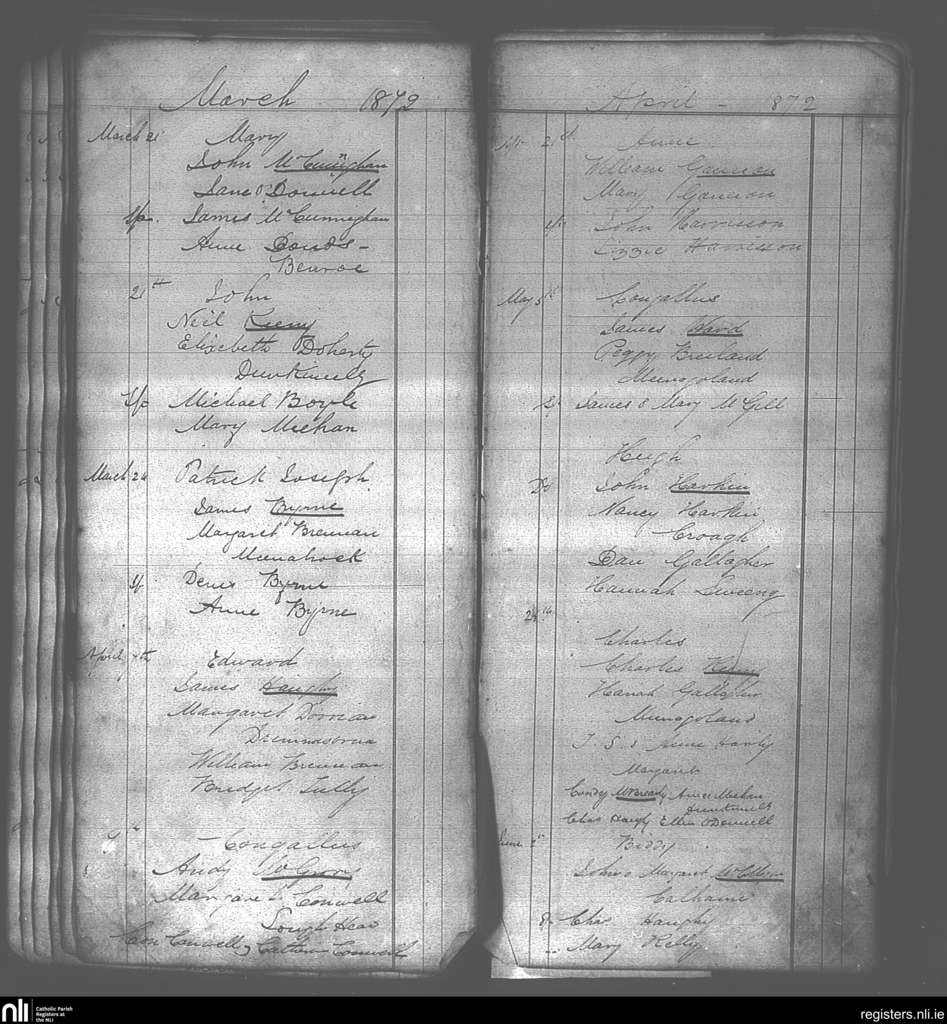 March 1872
March 21 Mary
John McCunnighan
Jane O'Donnell
Sp. James McCunneghan
Anne Bonds -
Benroe
21st John
Neil Keeny
Elizebeth Doherty
Dunkineely
Sp Michael Boyle
Mary Meehan
March 24 Patrick Joseph
James Byrne
Margaret Brennan
Meenahock
Sp Denis Byrne
Anne Byrne
April 7th Edward
James Haughy
Margaret
William Brennan
Bridget Tully
Congallus
Andy McGrory
Margaret Conwell
Lough Head
Con Conwell,
April - 1872
Apr 21st Anne
William Gannon
Mary Gannon
Sp John Harrison
Lizzie Harrison
May 5th Congallus
James Ward
Peggy Breiland
Meenagoland
Sp James & Mary McGill
Hugh
Do John Harkin
Nancy Harkin
Croagh
Dan Gallagher
Hannah
24th
Charles
Charles Keeny
Hanah Gallagher
Meenagoland
Margaret
Condy Anne Meehan
Dunkineely
Chas Haughy Ellen O'Donnell
June 2nd Biddy
John & Margaret
Calhame
Sp Chas Haughy
" Mary Kelly
nli
Catholic Parish
Registers at
the NLI
registers.nli.ie